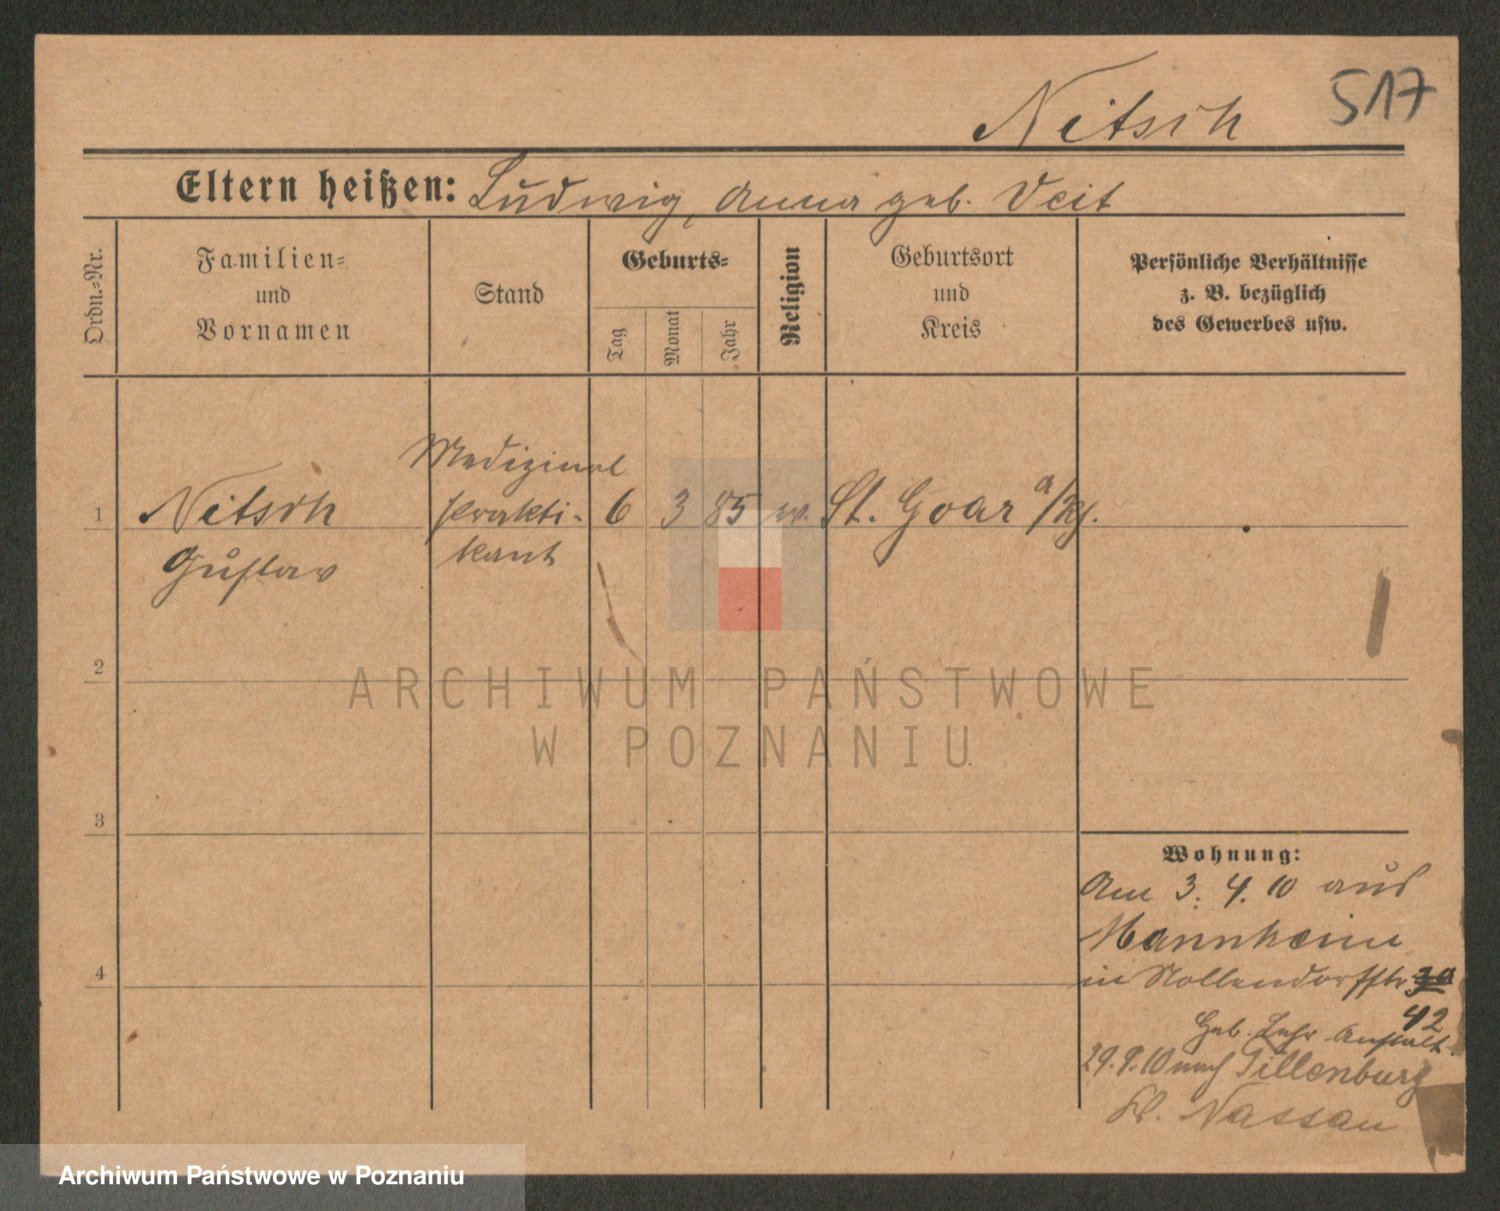 Nitsch 517
Eltern heißen: Ludwig, Anna geb. Veit
Ordn.-Nr.
Familien-
und
Vornamen
Stand
Geburts-
Tag
Monat
Jahr
Religion
Geburtsort
und
Kreis
Persönliche Verhältnisse
z. B. bezüglich
des Gewerbes usw.
1
Nitsch
Gustav
Medizinal
prakti-
kant
6 3 85 St. Goar a/Rh.
2
3
4
Wohnung:
Am 3. 4. 10 aus
Mannheim
in Nollendorffstr
42
Geb. Lehr Anstalt.
29. 9. 10 nach Dillenburg
Nassau
ARCHIWUM PAŃSTWOWE
W POZNANIU
Archiwum Państwowe w Poznaniu